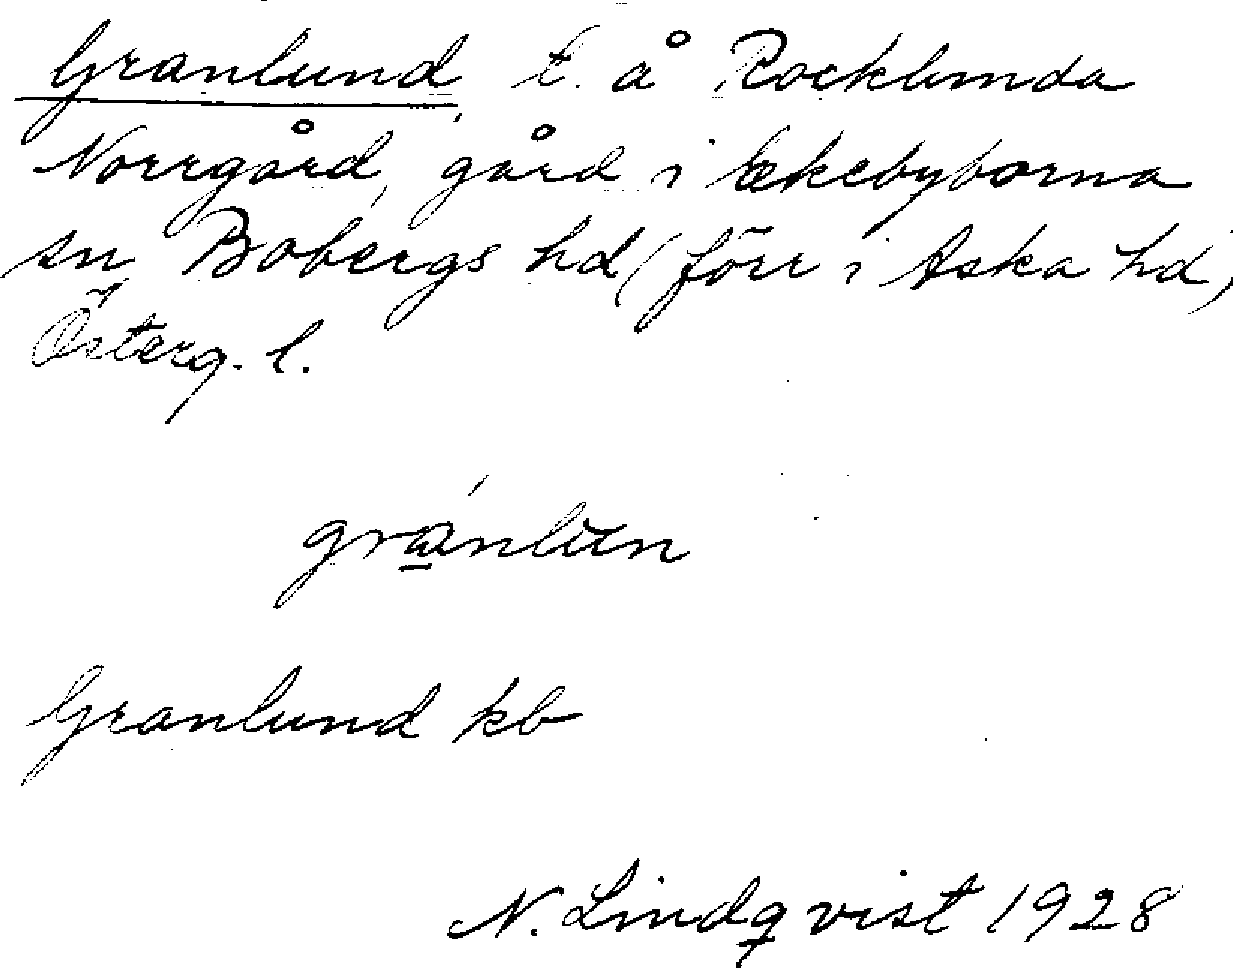 Granlund, t. å Rocklunda
Norrgård, gård i Ekebyborna
sn, Bobergs hd (förr i Aska hd)
Österg. l.
Granlund kb
N. Lindqvist 1928